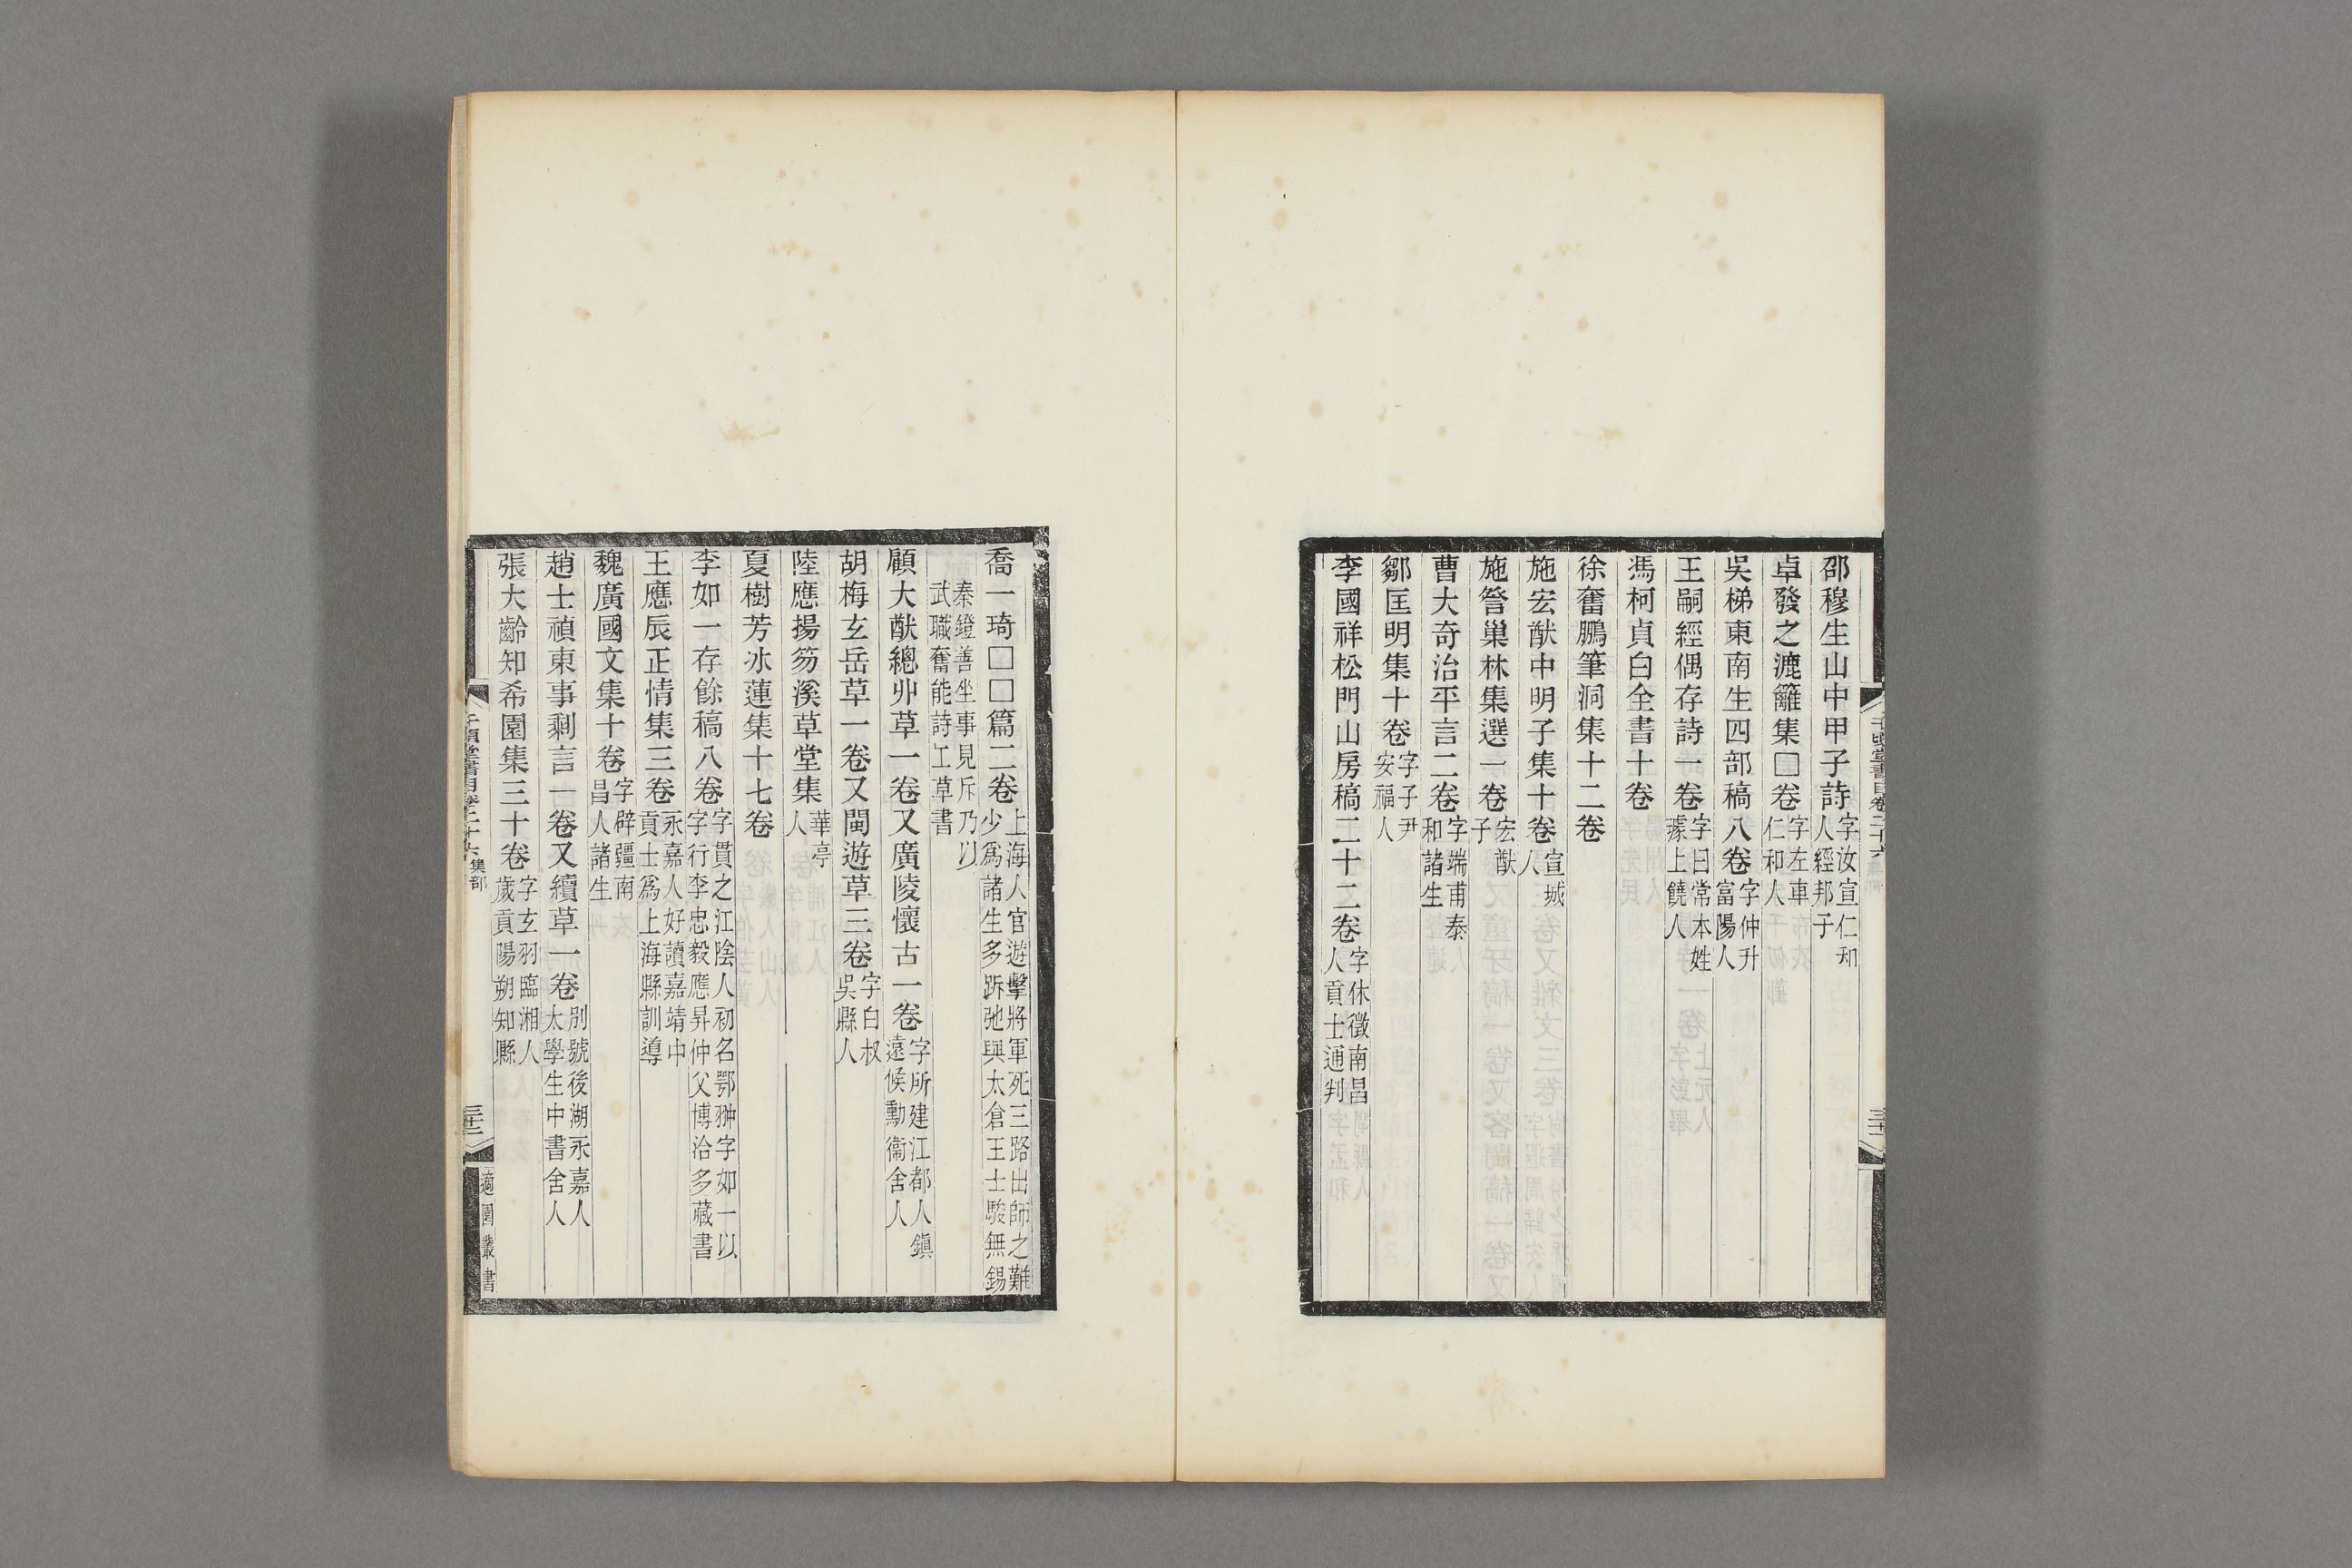 邵穆生山中甲子詩字汝宣仁和人經邦子
卓發之漉籬集□卷字左車仁和人
吳梯東南生四部稿八卷字仲升富陽人
王嗣經偶存詩一卷字曰常本姓璩上饒人
馮柯貞白全書十卷
徐奮鵬筆洞集十二卷
施宏猷中明子集十卷宣城人
施譽巢林集選一卷宏猷子
曹大奇治平言二卷字端甫泰和諸生
鄒匡明集十卷字子尹安福人
李國祥松門山房稿二十二卷字休徵南昌人貢士通判
喬一琦□□篇二卷上海人官遊擊將軍死三路出師之難少爲諸生多跅弛與太倉王士駿無錫
秦鐙善坐事見斥乃以武職奮能詩工草書
顧大猷總丱草一卷又廣陵懷古一卷字所建江都人鎮遠候勳衞舍人
胡梅玄岳草一卷又閩遊草三卷字白叔吳縣人
陸應揚笏溪草堂集華亭人
夏樹芳冰蓮集十七卷
李如一存餘稿八卷字貫之江陰人初名鄂翀字如一以字行李忠毅應昇仲父博洽多藏書
王應辰正情集三卷永嘉人好讀嘉靖中貢士爲上海縣訓導
魏廣國文集十卷字辟疆南昌人諸生
趙士禎東事剩言一卷又續草一卷別號後湖永嘉人太學生中書舍人
張大齡知希園集三十卷字玄羽臨湘人歲貢陽朔知縣
千頃堂書目卷二十六 集部
三十二
適園叢書